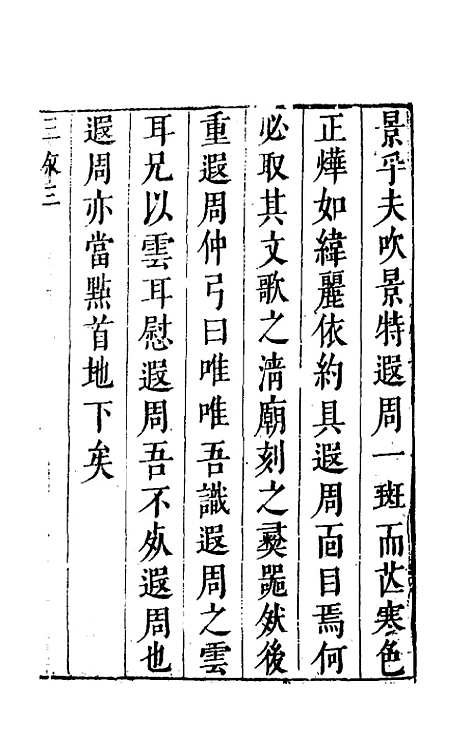 景乎夫吹景特遐周一斑而芒寒色
正燁如緯麗依約具遐周面目焉何
必取其文歌之清廟刻之彛噐然後
重遐周仲弓曰唯唯吾識遐周之雲
耳兄以雲耳慰遐周吾不失遐周也
遐周亦當㸃首地下矣
三叙三